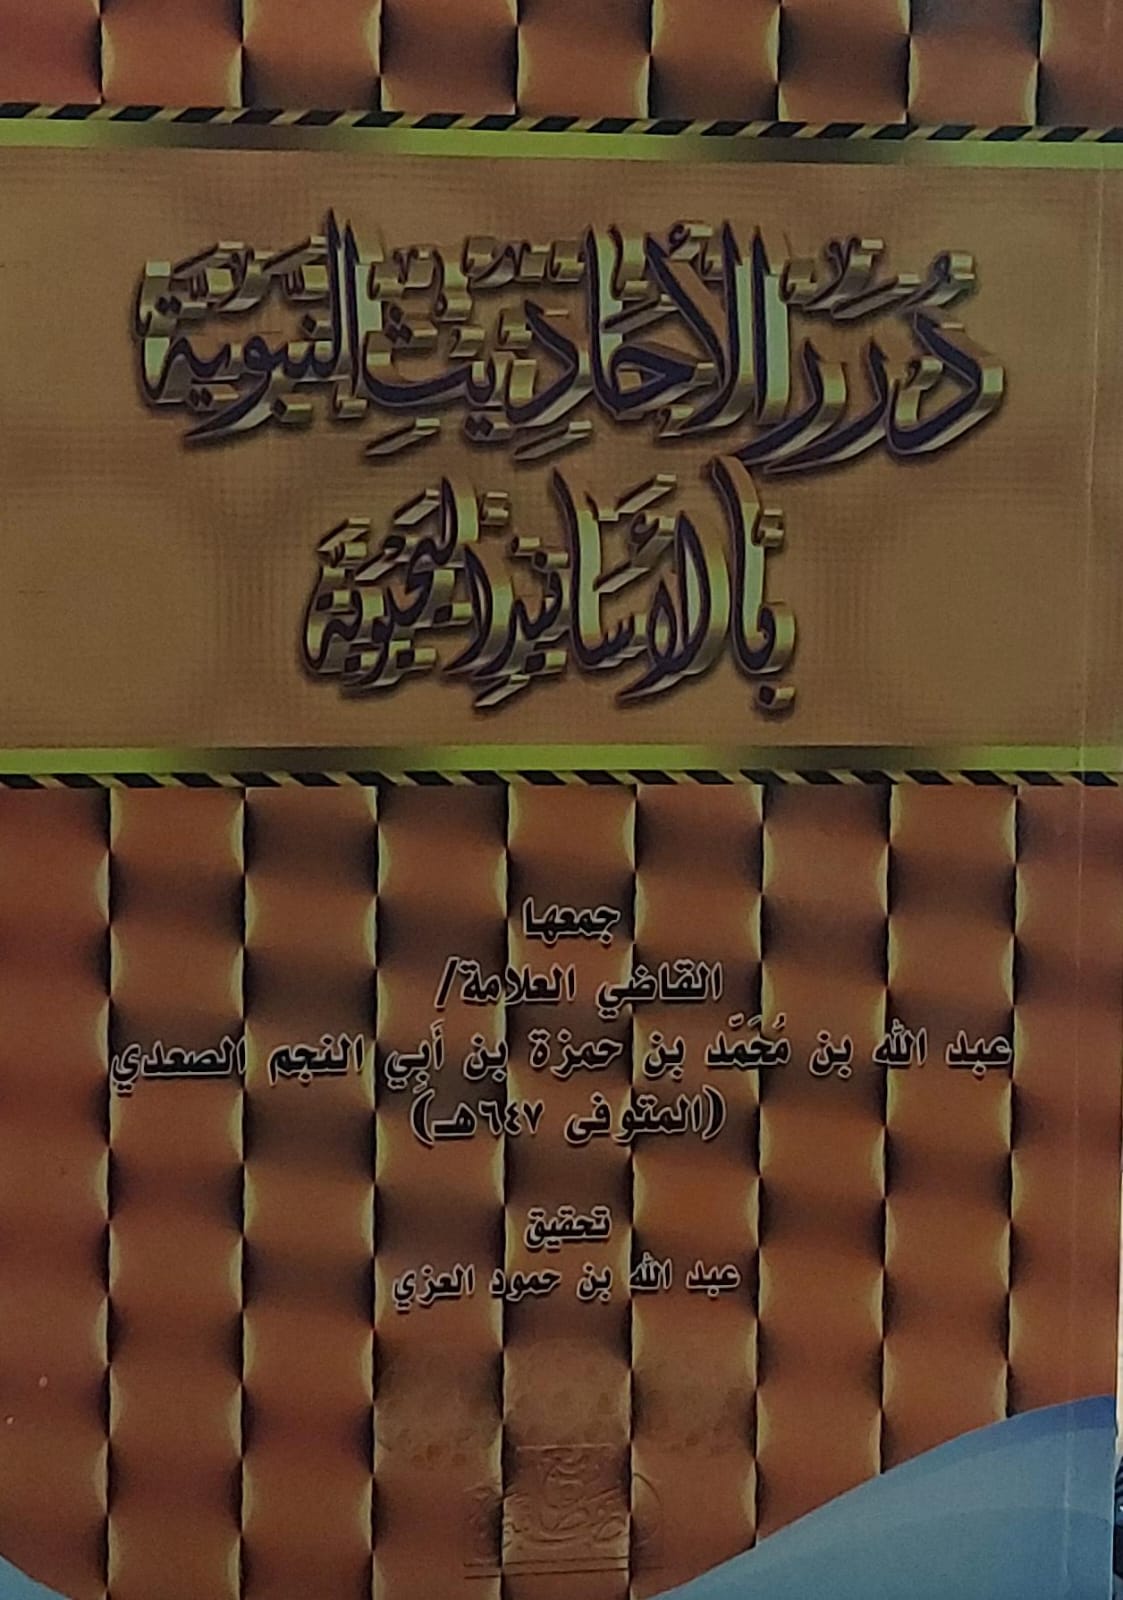 دُرَرُ الأَحَادِيثِ النَّبَوِيَّة
بِالأَسَانِيدِ اليَحْيَوِيَّة
جمعها
القاضي العلامة/
عبد الله بن مُحَمّد بن حمزة بن أَبِي النجم الصعدي
(المتوفى ٦٤٧هـ)
تحقيق
عبد الله بن حمود العزي